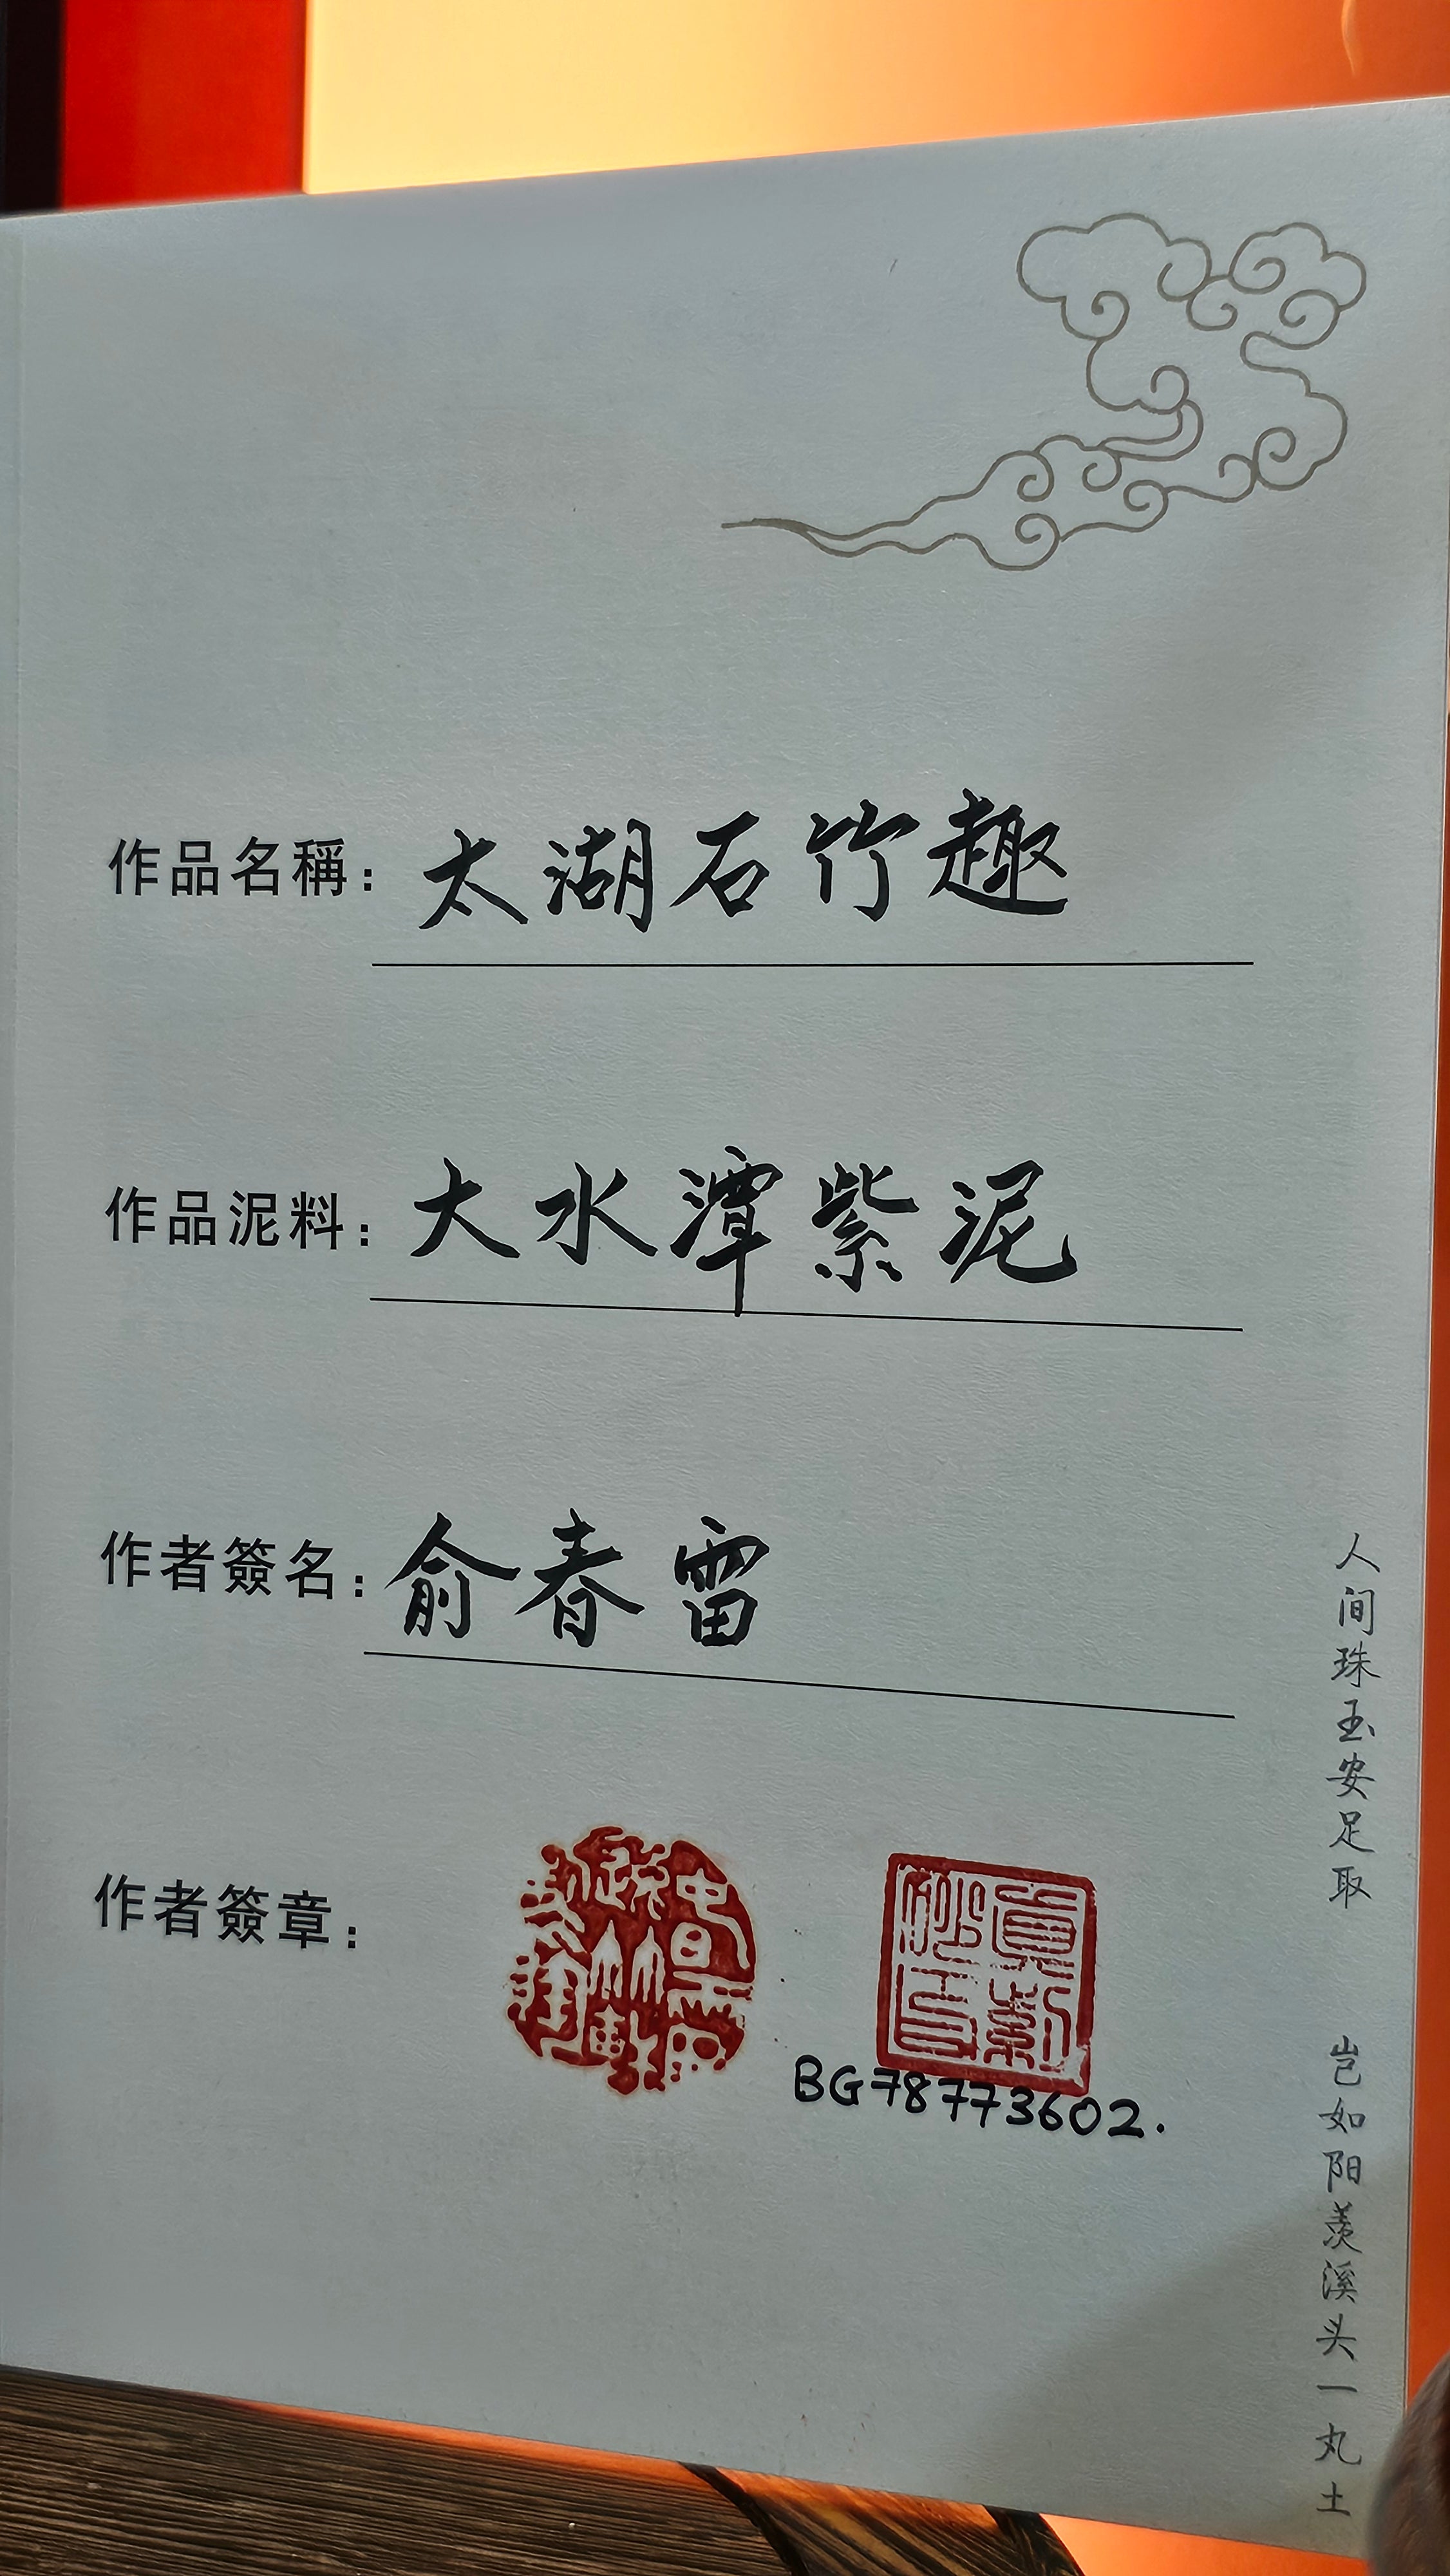 作品名稱：太湖石竹趣
作品泥料：大水潭紫泥
作者簽名：俞春雷
作者簽章：
BG78773602.
人间珠玉安足取
岂如阳羡溪头一丸土